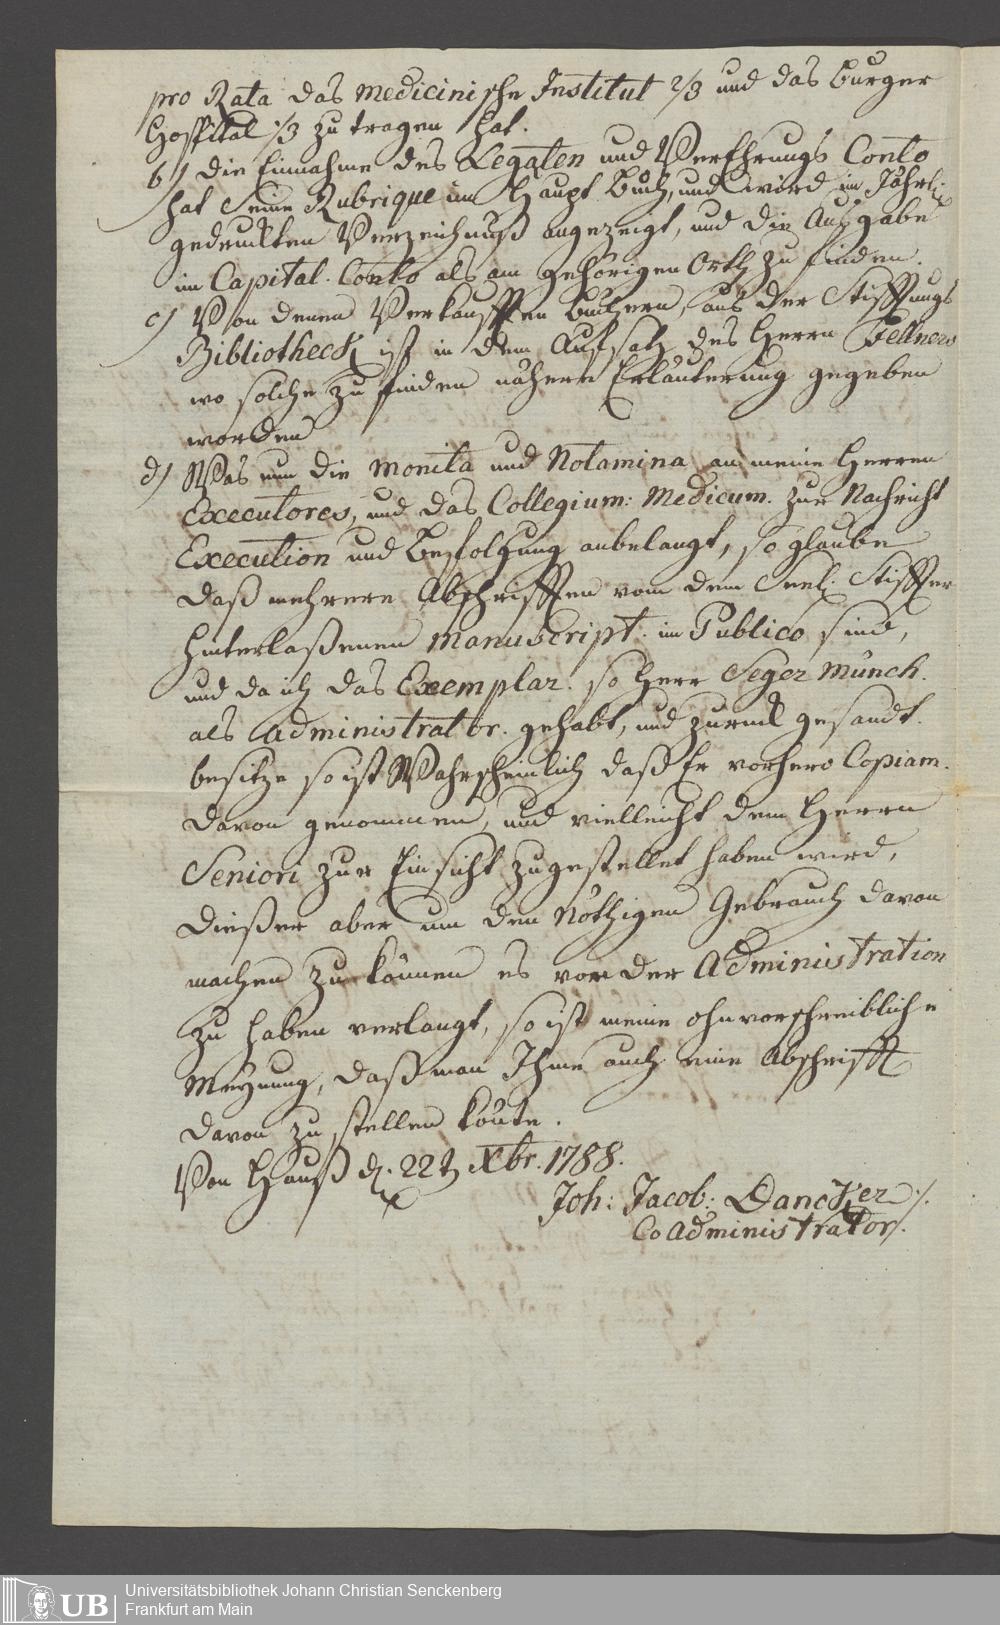 pro Rata das medicinische Institut 2/3 und das Burger
Hospital 1/3 zu tragen hat.
b) die Einnahme des Legaten und Verehrungs Conto
hat Seine Rubrique im Haupt Buch, und wird im Jährl:
gedruckten Verzeichnuß angezeigt, und die Ausgabe
im Capital. Conto als am gehörigen Orth zu finden.
c) Von denen Verkaufften Büchern, aus der Stifftungs
Bibliotheck ist in dem Aufsatz des Herrn Fellners
wo solche zu finden nähere Erläuterung gegeben
worden
d) Was nun die Monita und Notamina an meine Herren
Executores, und das Collegium: Medicum. zur Nachricht
Execution und Befolgung anbelangt, so glaube
daß mehrere Abschrifften von dem Seel: Stiffter
hinterlaßenen Manuscript. im Publico sind,
und da ich das Exemplar. so Herr Seger Münch.
als Administrator. gehabt, und zurück gesandt.
besitze so ist Wahrscheinlich daß Er vorhero Copiam.
davon genommen, und vielleicht dem Herrn
Seniori zur Einsicht zugestellet haben wird,
dießer aber um den nöthigen Gebrauch davon
machen zu können es von der Administration
zu haben verlangt, so ist meine ohnvorschreibliche
Meynung, daß man Ihme auch eine Abschrifft
davon zu stellen könte.
Von Hauß d. 22t Xbr. 1788.
Joh: Jacob: Dancker /.
CoAdministrator.
UB
Universitätsbibliothek Johann Christian Senckenberg
Frankfurt am Main